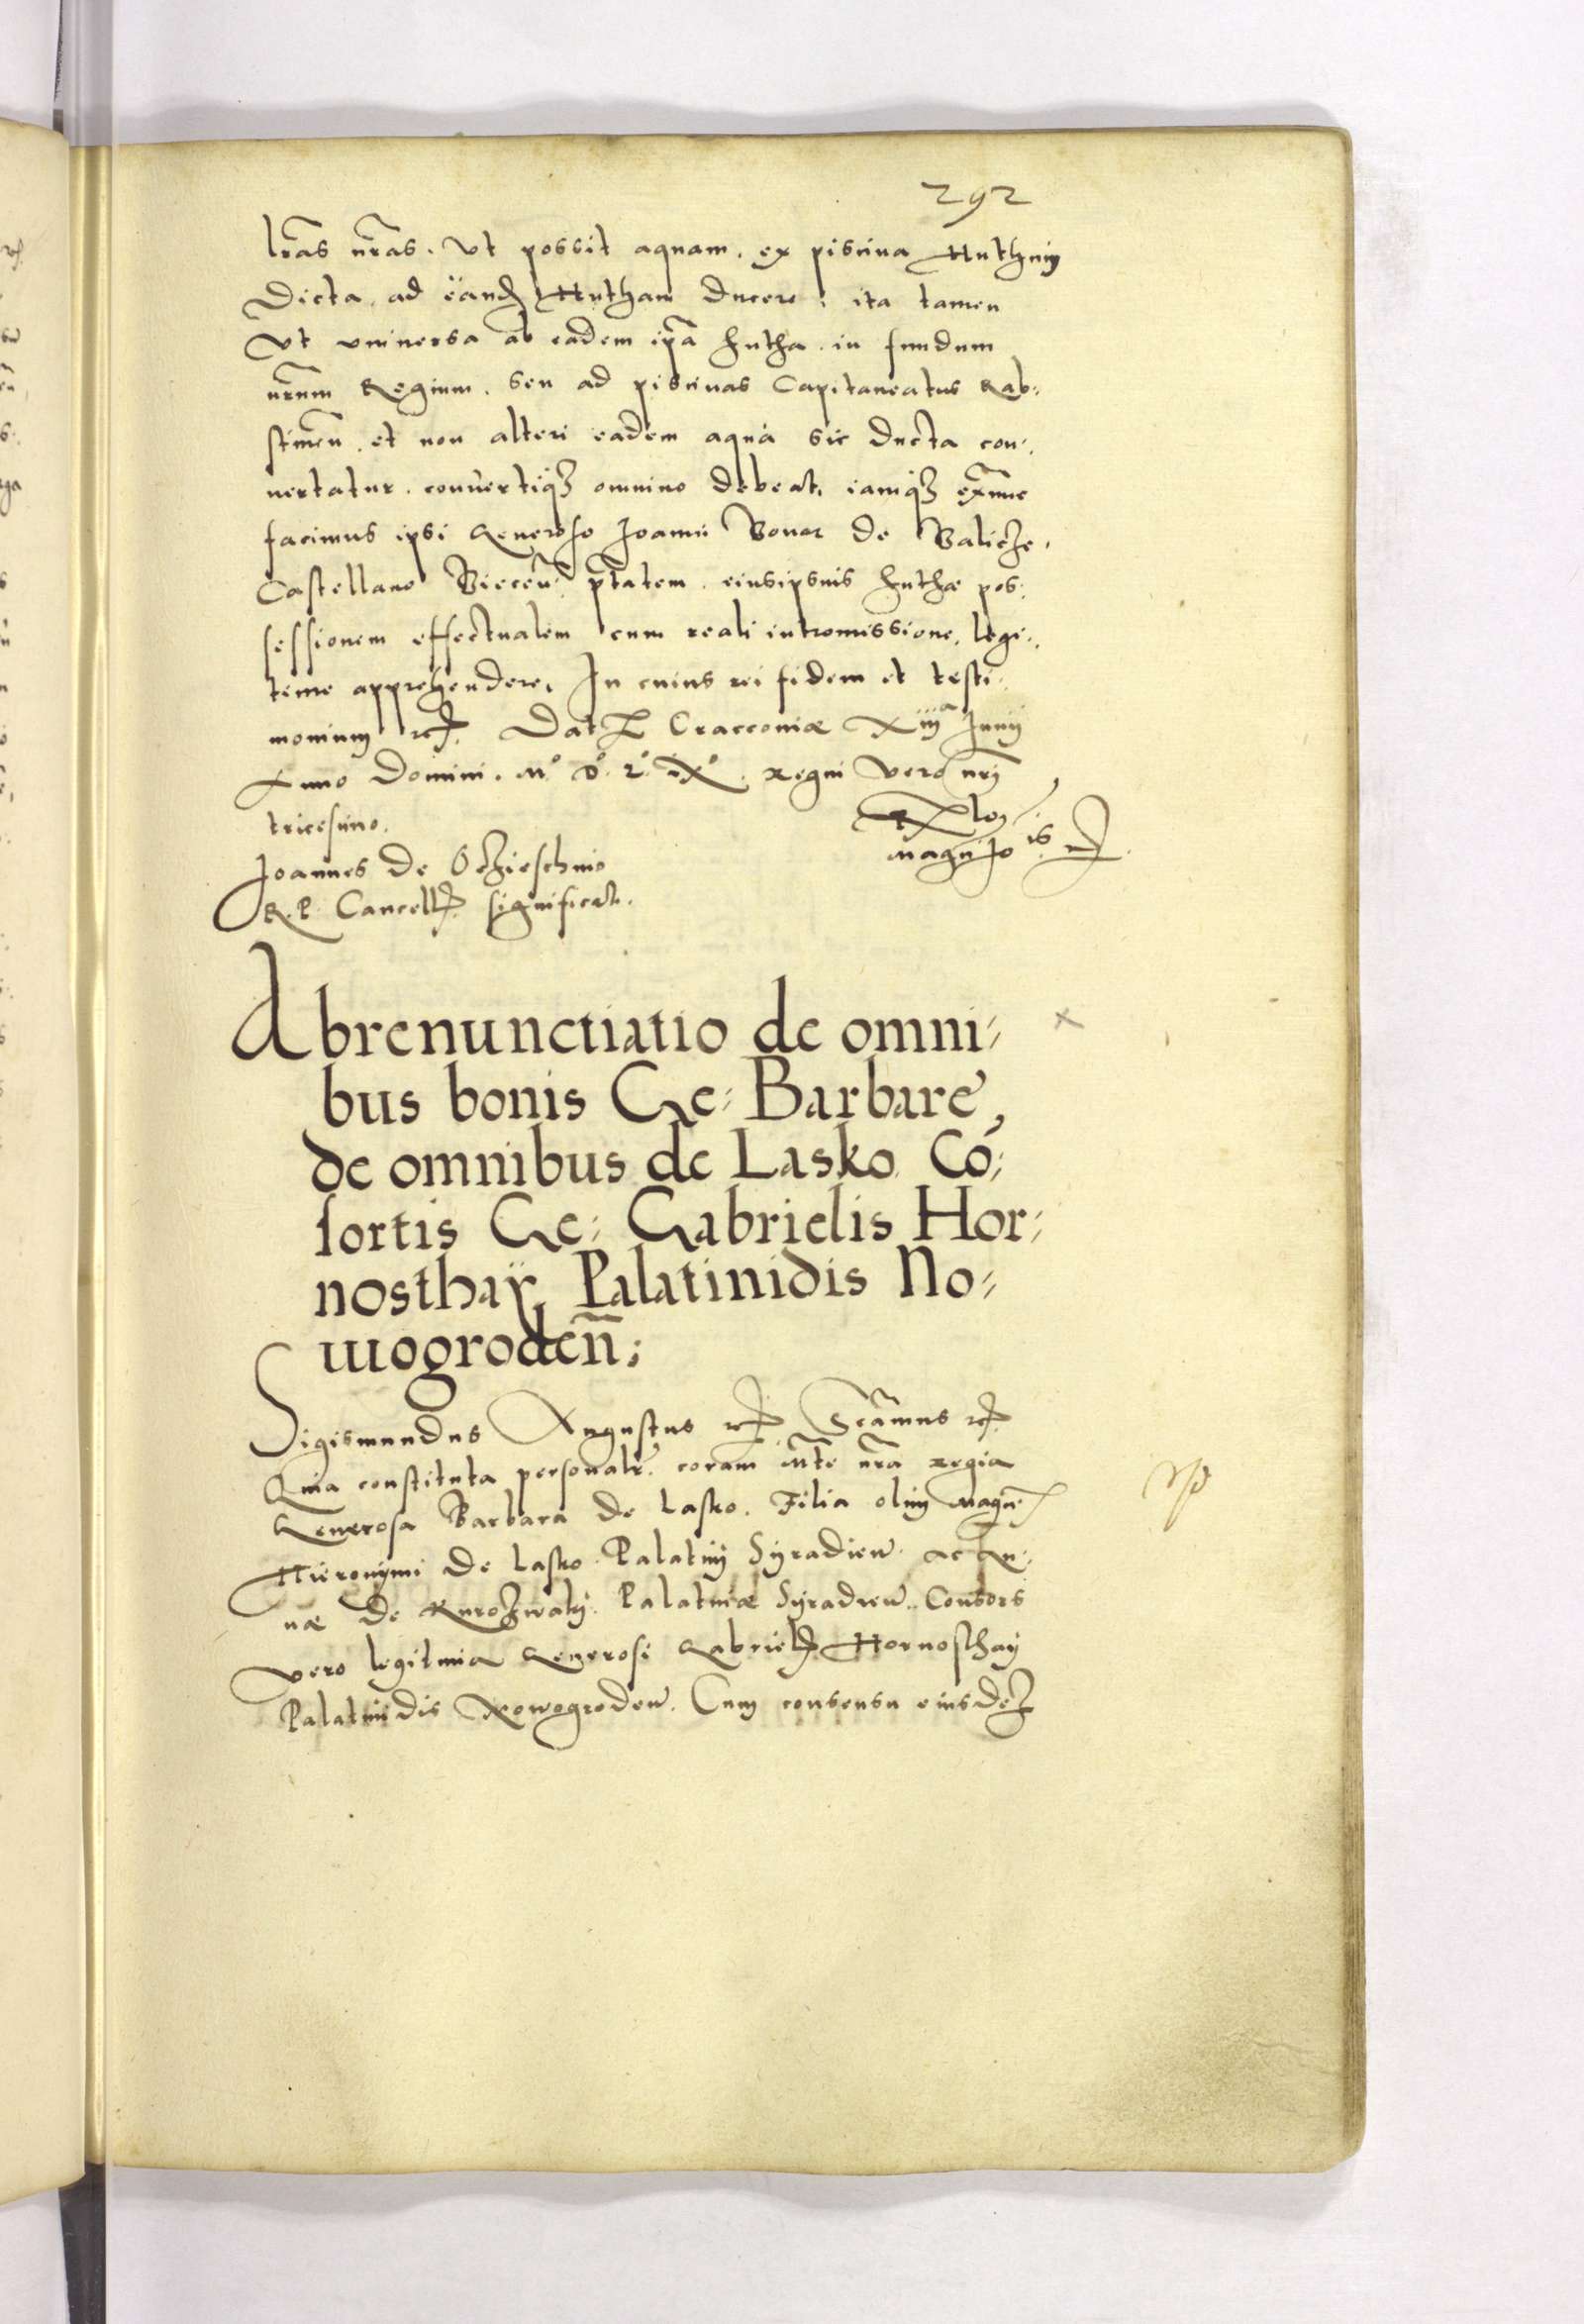 292
lr̃as nr̃as. Ut possit aquam. ex piscina Huthnij
Dicta. ad eand Hutham ducere: ita tamen
Ut universa ab eadem ip̃a hutha. in fundum
nr̃um Regium. seu ad piscinas Capitaneatus Rab:
stinen̄. et non alteri eadem aqua sic ducta con:
vertatur. convertiq₃ omnino debeat, iamq₃ ex̃nunc
facimus ipsi Generoso Joanni Boner de Balicze.
Castellano Biecen̄: p̃tatem. eiusipsius huthæ pos:
sessionem effectualem cum reali intromissione, legi:
time apprehendere. In cuius rei fidem et testi:
monium etc. Dat Cracoviæ Xiijª Junij
Anno Domini. Mº Dº Lº iXº. regni vero nr̃i
tricesimo.
Rlo
magci Jo is
Joannes de Oczieschino
R. P. Cancell. significat.
Abrenunctiatio de omni=
bus bonis Ge: Barbare,
de omnibus de Lasko. Có:
sortis Ge: Gabrielis Hor:
nosthaÿ Palatinidis No=
wogrodeñ;
Sigismundus Augustus etc. Significamus etc.
Quia constituta personalr̃. coram Mt̃e nr̃a regia
Generosa Barbara de Lasko. Filia olim Magci
Hieronijmi de Lasko. Palatinj Sijradien̄. ac An:
næ de Kurozwaky. Palatinæ Sijradien̄. Consors
vero legitima Generosi Gabriel Hornosthaij
Palatinidis Nowogroden̄. Cum consensu eiusdez